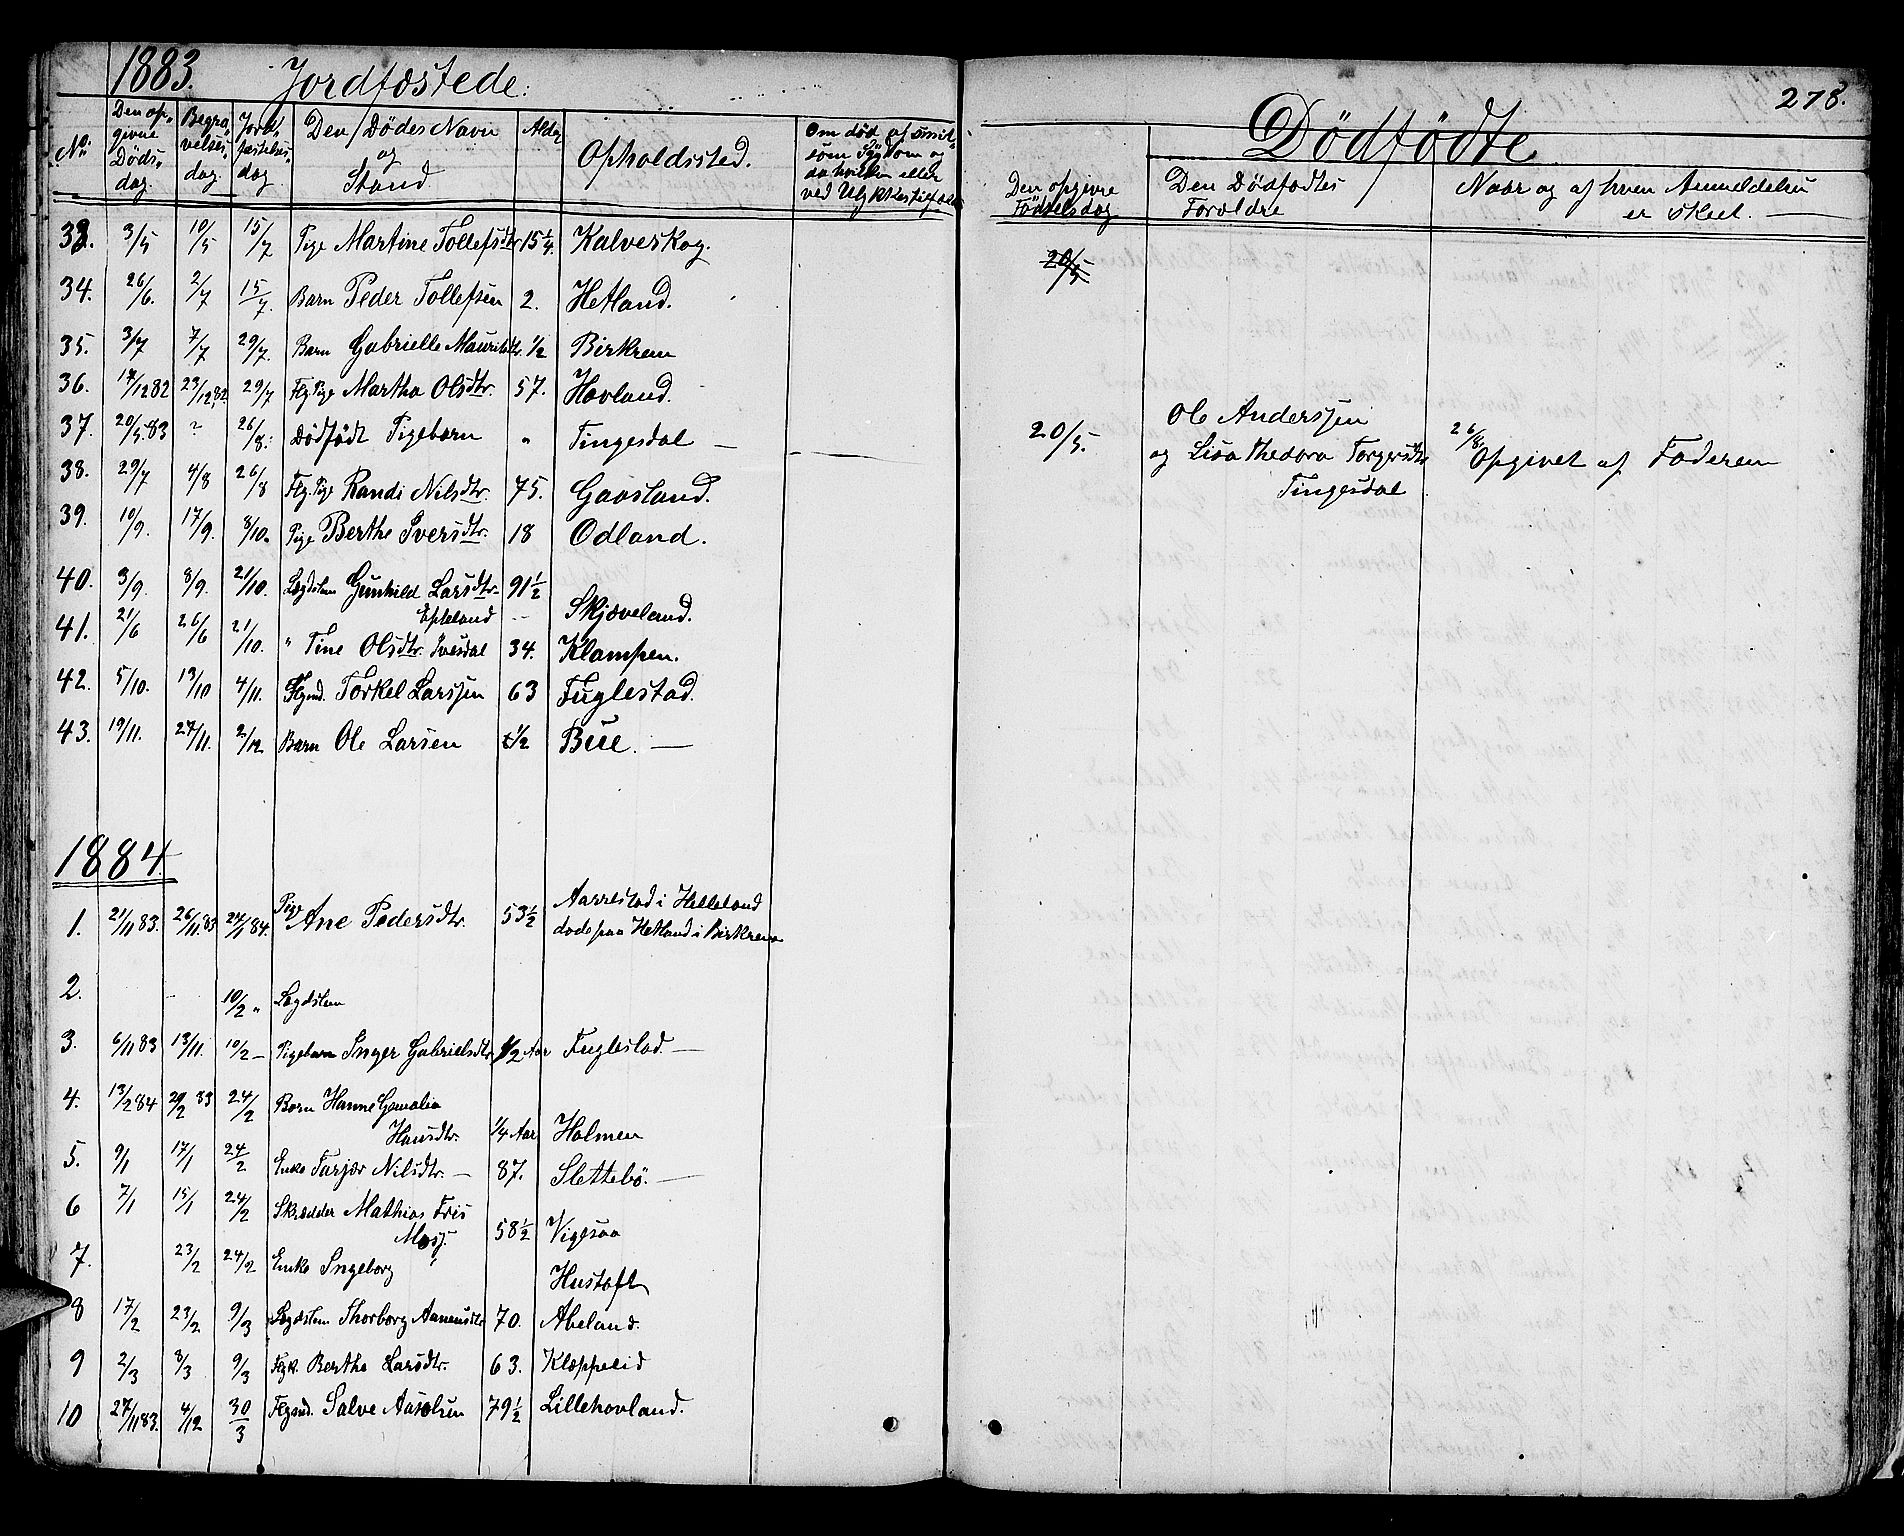 1883. Jordfæstede:
No. | Den opgivne Dødsdag. | Begravelsesdag. | Jordfæstelsesdag | Den Dødes Navn og Stand | Alder | Opholdssted. | Om død af smitsom Sygdom og da hvilken eller ved Ulykkestilfælde
33. 3/5 10/5 15/7 Pige Martine Tollefsdtr 15 1/4. Kalveskog.
34. 26/6. 2/7 15/7. Barn Peder Tollefsen 2. Hetland.
35. 3/7 7/7 29/7. Barn Gabrielle Mauritsdtr. 1/2 Birkrem
36. 17/12 82 23/12 82. 29/7 Flg. Pige Martha Olsdtr. 57. Hovland.
37. 20/5 83 ? 26/8. Dødfødt Pigebarn " Tingesdal —
38. 29/7 4/8 26/8 Flg. Pige Randi Nilsdtr. 75. Gaasland.
39. 10/9. 17/9. 8/10. Pige Berthe Iversdtr. 18 Odland.
40. 3/9. 8/9. 21/10. Lægdslem Gunhild Larsdtr. 91 1/2
Epteland Skjæveland.
41. 21/6 26/6 21/10. " Tine Olsdtr. Ivesdal 34. Klampen.
42. 5/10. 13/10 4/11. Flgmd. Torkel Larssen 63 Fuglestad.
43. 19/11. 27/11. 2/12 Barn Ole Larsen 1/2 Bue. —
1884.
1. 21/11 83. 26/11. 83 27/1 84. Pige Ane Pedersdtr. 53 1/2 Aarrestad i Helleland
døde paa Hetland i Birkrem
2. 10/2 " Lægdslem
3. 6/11 83 13/11. 10/2 — Pigebarn Inger Gabrielsdtr. 1/2 Aar Fuglestad. —
4. 13/2 84 20/2 83 24/2 Barn Hanne Gemalia
Hansdtr. 1/4 Aar Holmen
5. 9/1 17/1 24/2 Enke Tarjær Nilsdtr. — 87. Slettebö. —
6 7/1 15/1 24/2 Skrædder Mathias Friis
Mosj. 58 1/2 Vigesaa
7. 23/2 24/2 Enke Ingeborg
Hustoft
8 17/2 23/2 9/3 Lægdslem Thorborg Aanensdtr 70. Abeland.
9 2/3 8/3 9/3 Flgk. Berthe Larsdtr. 63. Klæppelid
10 27/11 83. 4/12 30/3 Flgmd. Salve Aasolsen 79 1/2 Lillehovland.
278.
Dødfødte
Den opgivne Fødselsdag | Den Dødfødtes Forældre | Naar og af hvem Anmeldelsen er skeet. —
20/5
20/5. Ole Anderssen
og Lisa Thedora Torgersdtr 26/8. Opgivet af Faderen
Tingesdal